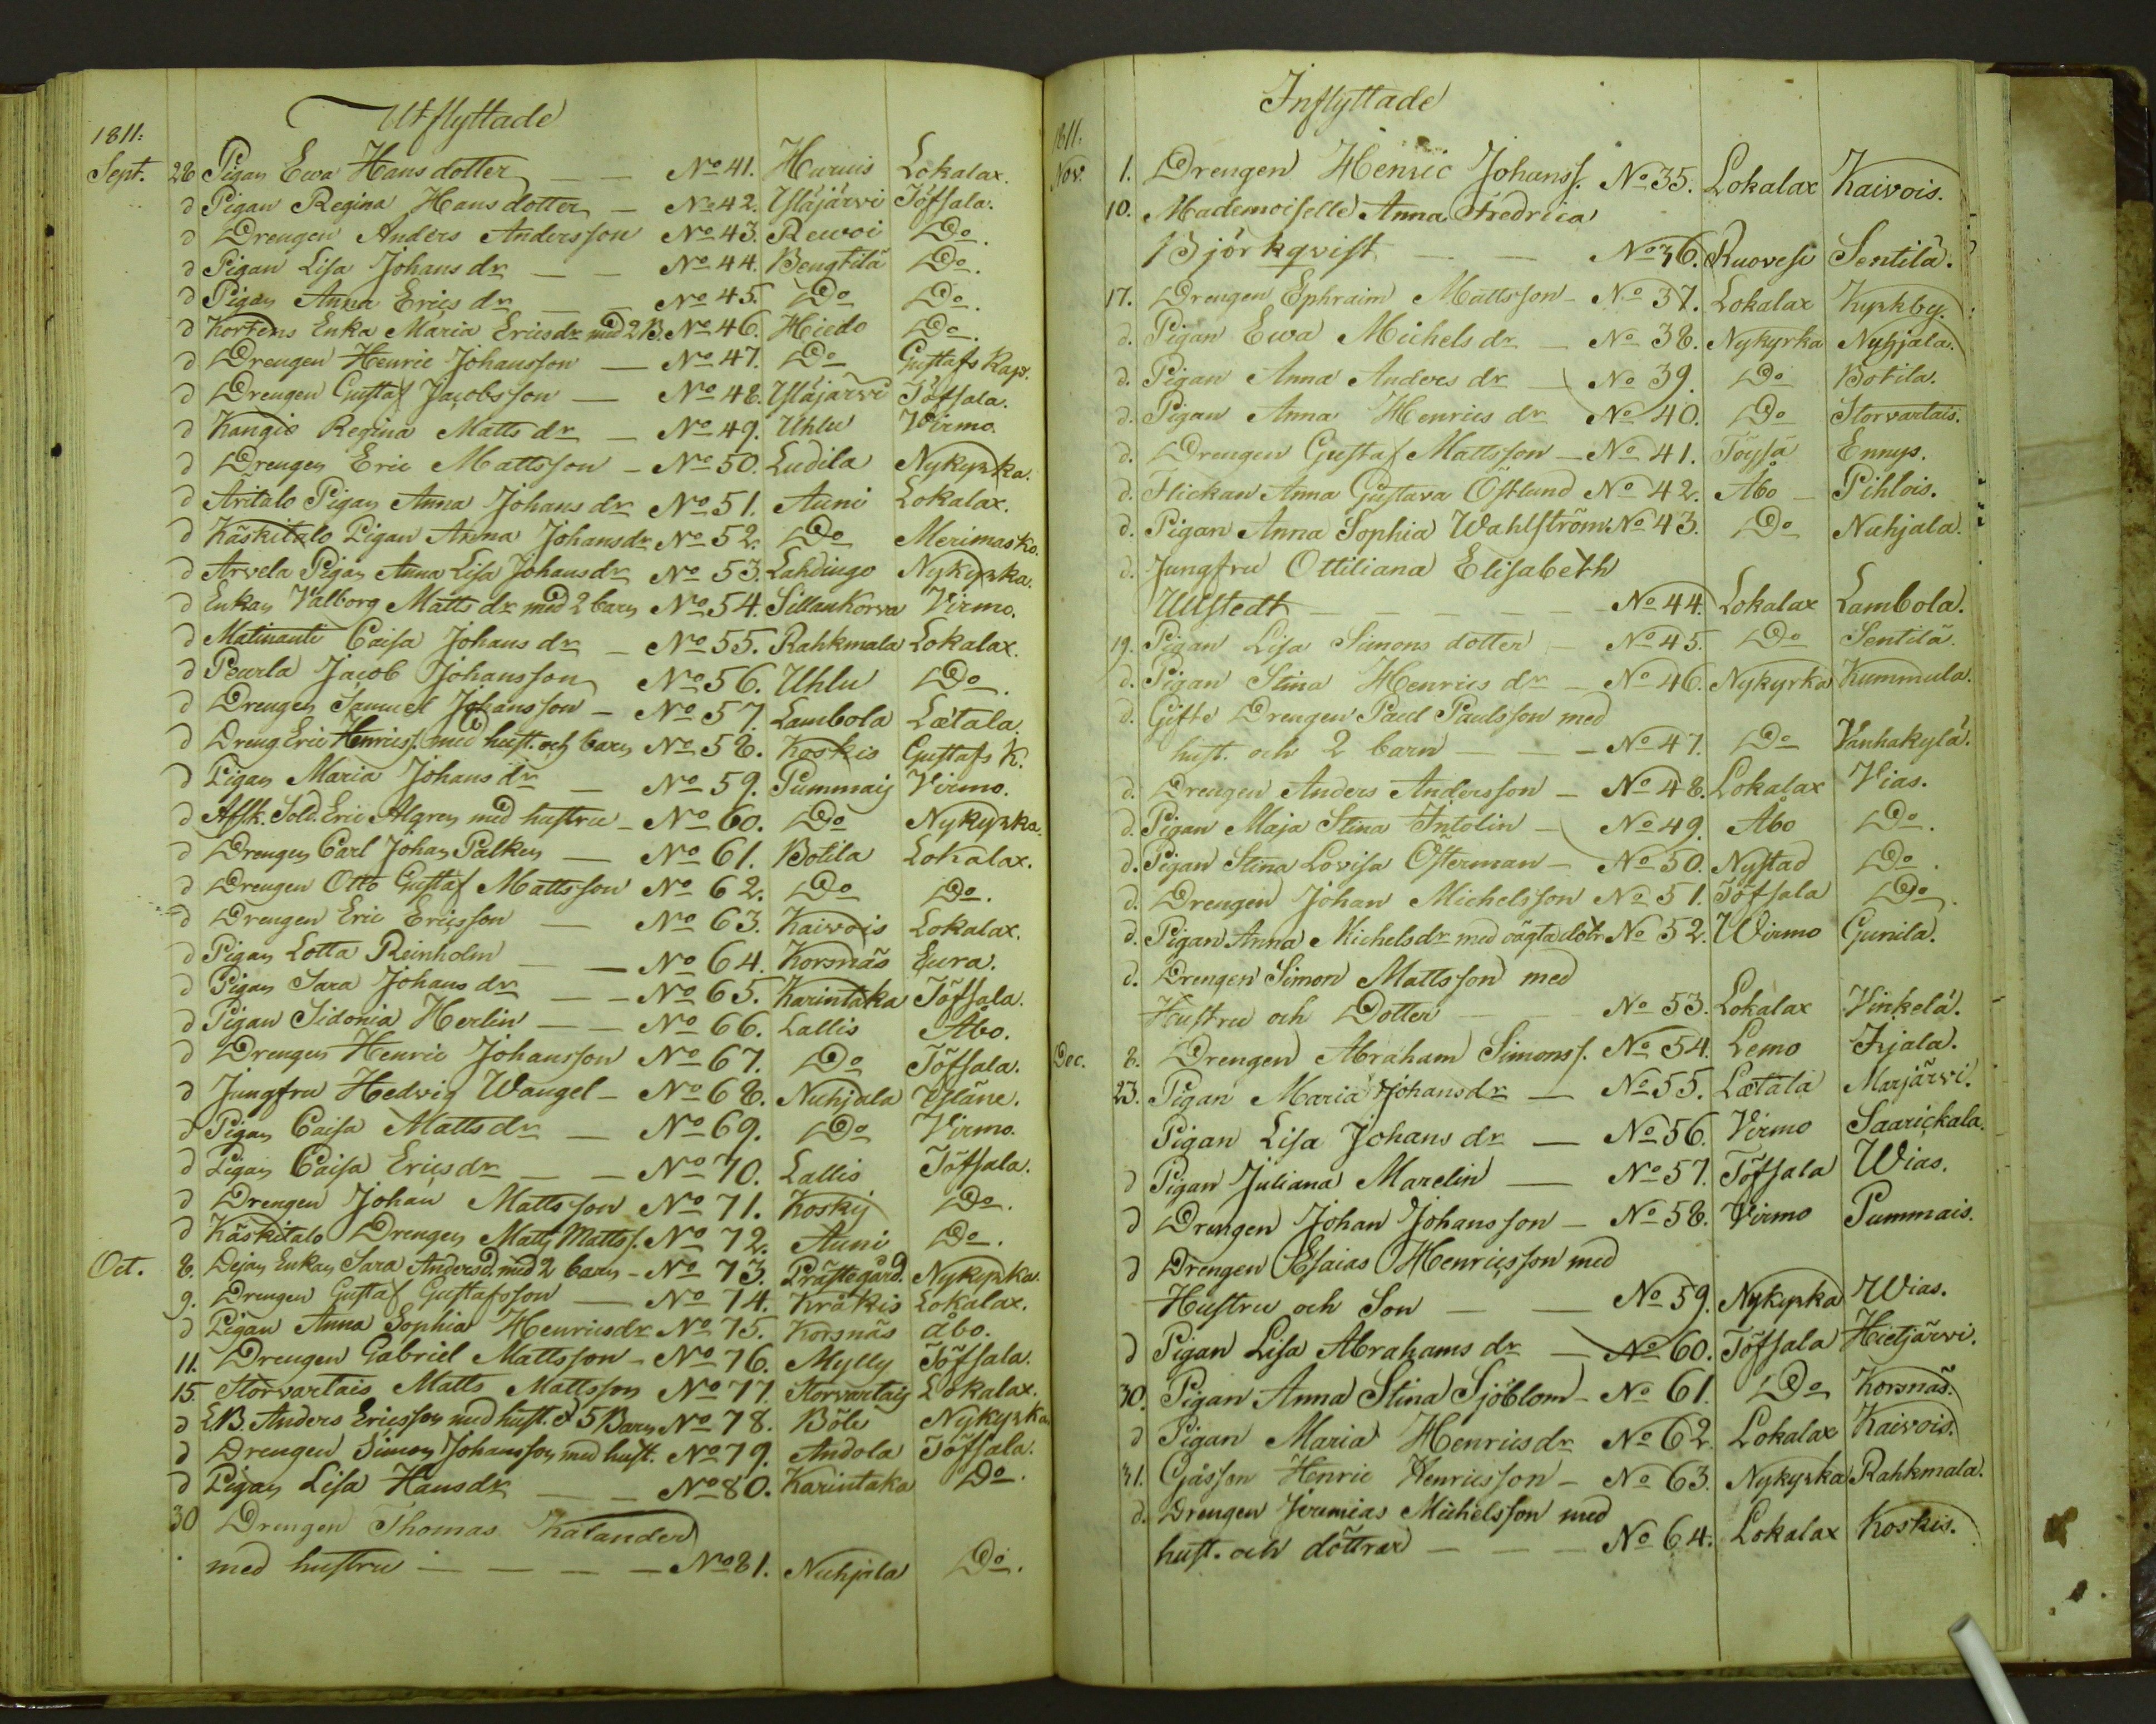 Utflyttade
1811:
Sept. 28 Pigan Ewa Hansdotter — — No 41. Haruis Lokalax.
d Pigan Regina Hansdotter — No 42. Ylsäjärvi Töfsala.
d Drengen Anders Andersson No 43. Rewoi Do.
d Pigan Lisa Johans dr — — No 44. Bengtilä Do.
d Pigan Anna Erics dr — No 45. Do Do.
d Kortens Enka Maria Ericsdr med 2 B. No 46. Hiedo Do.
d Drengen Henric Johansson — No 47. Do Gustafs Kap.
d Drengen Gustaf Jacobsson — No 48. Ylsäjärvi Töfsala.
d Kangio Regina Matts dr — No 49. Uhlu Virmo.
d Drengen Eric Mattsson — No 50. Ludila Nykyrka.
d Aritalo Pigan Anna Johans dr No 51. Auni Lokalax.
d Käskitalo Pigan Anna Johansdr No 52. Do Merimasko.
d Arvela Pigan Anna Lisa Johansdr No 53. Lahdingo Nykyrka.
d Enkan Valborg Matts dr med 2 barn No 54. Sillankorva Virmo.
d Matinanti Caisa Johans dr — No 55. Rahkmala Lokalax.
d Pearla Jacob Johansson No 56. Uhlu Do.
d Drengen Samuel Johansson — No 57. Lambola Lætala.
d Dreng Eric Henricss. med hust. och barn No 58. Koskis Gustafs K.
d Pigan Maria Johans dr — No 59. Pummaij Virmo.
d Afsk. Sold. Eric Algren med hustru — No 60. Do Nykyrka.
d Drengen Carl Johan Palken — No 61. Botila Lokalax.
d Drengen Otto Gustaf Mattsson No 62. Do Do.
d Drengen Eric Ericsson — No 63. Kaivois Lokalax.
d Pigan Lotta Reinholm — No 64. Korsnäs Eura.
d Pigan Sara Johans dr — — No 65. Karintaka Töfsala.
d Pigan Sidonia Herlin — — No 66. Lallis Åbo.
d Drengen Henric Johansson No 67. Do Töfsala.
d Jungfru Hedvig Wangel — No 68. Nuhjala Yläne.
d Pigan Caisa Matts dr — No 69. Do Virmo.
d Pigan Caisa Ericsdr — — No 70. Lallis Töfsala.
d Drengen Johan Mattsson No 71. Koskij Do.
d Käskitalo Drengen Matts Mattss. No 72. Auni Do.
Oct. 8. Dejan Enkan Sara Andersd. med 2 barn — No 73. Prästegård. Nykyrka.
9. Drengen Gustaf Gustafsson — No 74. Kråkis Lokalax.
d Pigan Anna Sophia Henricsdr No 75. Korsnäs åbo.
11. Drengen Gabriel Mattsson — No 76. Mylly Töfsala.
15. Storvartais Matts Mattsson No 77. Storvartaij Lokalax.
d LB. Anders Ericsson med hust. & 5 Barn No 78. Böle Nykyrka
d Drengen Simon Johansson med hust. No 79. Andola Töfsala.
d Pigan Lisa Hansdr — — No 80. Karintaka Do.
30 Drengen Thomas Kalander
med hustru — — — — No 81. Nuhjala Do.
Inflyttade
1811.
Nov. 1. Drengen Henric Johanss. No 35. Lokalax Kaivois.
10. Mademoiselle Anna Fredrica
Björkqvist — — No 36. Ruovesi Sentilä.
17. Drengen Ephraim Mattsson — No 37. Lokalax Kyrkby.
d. Pigan Ewa Michels dr — No 38. Nykyrka Nuhjala.
d. Pigan Anna Anders dr — No 39. Do Botila.
d. Pigan Anna Henrics dr No 40. Do Storvartais.
d. Drengen Gustaf Mattsson — No 41. Töysä Ennys.
d. Flickan Anna Gustava Östlund No 42. Åbo — Pihlois.
d. Pigan Anna Sophia Wahlström No 43. Do Nuhjala.
d. Jungfru Ottiliana Elisabeth
Ullstedt — — — — — No 44. Lokalax Lambola.
19. Pigan Lisa Simons dotter — No 45. Do Sentilä.
d. Pigan Stina Henrics dr — No 46. Nykyrka Kummula.
d. Gifte Drengen Paul Paulsson med
hust. och 2 barn — — — No 47. Do Vanhakylä.
d. Drengen Anders Andersson — No 48. Lokalax Vias.
d. Pigan Maja Stina Intolin — No 49. Åbo Do.
d. Pigan Stina Lovisa Österman — No 50. Nystad Do.
d. Drengen Johan Michelsson No 51. Töfsala Do.
d. Pigan Anna Michelsdr med oägta dotr No 52. Wirmo Gunila.
d. Drengen Simon Mattsson med
Hustru och Dotter — No 53. Lokalax Vinkelä.
Dec. 8. Drengen Abraham Simonss. No 54. Lemo Irjala.
23. Pigan Maria Johansdr — No 55. Lætala Marjärvi.
Pigan Lisa Johans dr — No 56. Virmo Saarickala.
d Pigan Juliana Marelin — No 57. Töfsala Wias.
d Drengen Johan Johansson — No 58. Virmo Pummais.
d Drengen Esaias Henricsson med
Hustru och Son — — No 59. Nykyrka Wias.
d Pigan Lisa Abrahams dr — No 60. Töfsala Hietjärvi.
30. Pigan Anna Stina Sjöblom — No 61. Do Korsnäs.
d Pigan Maria Henricsdr No 62. Lokalax Kaivois.
31. Gåssen Henric Henricsson — No 63. Nykyrka Rahkmala.
d. Drengen Jeremias Michelsson med
hust. och döttrar — — — No 64. Lokalax Koskis.